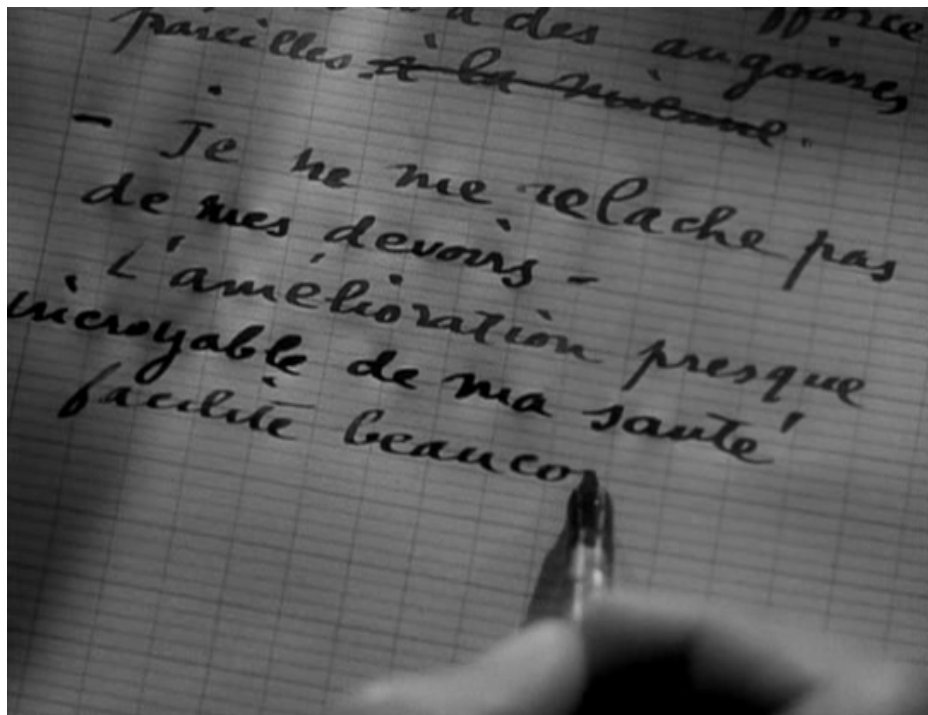 a des angoisses
pareilles à la mienne.
- Je ne me relache pas
de mes devoirs -
L'amélioration presque
incroyable de ma santé
facilite beaucou